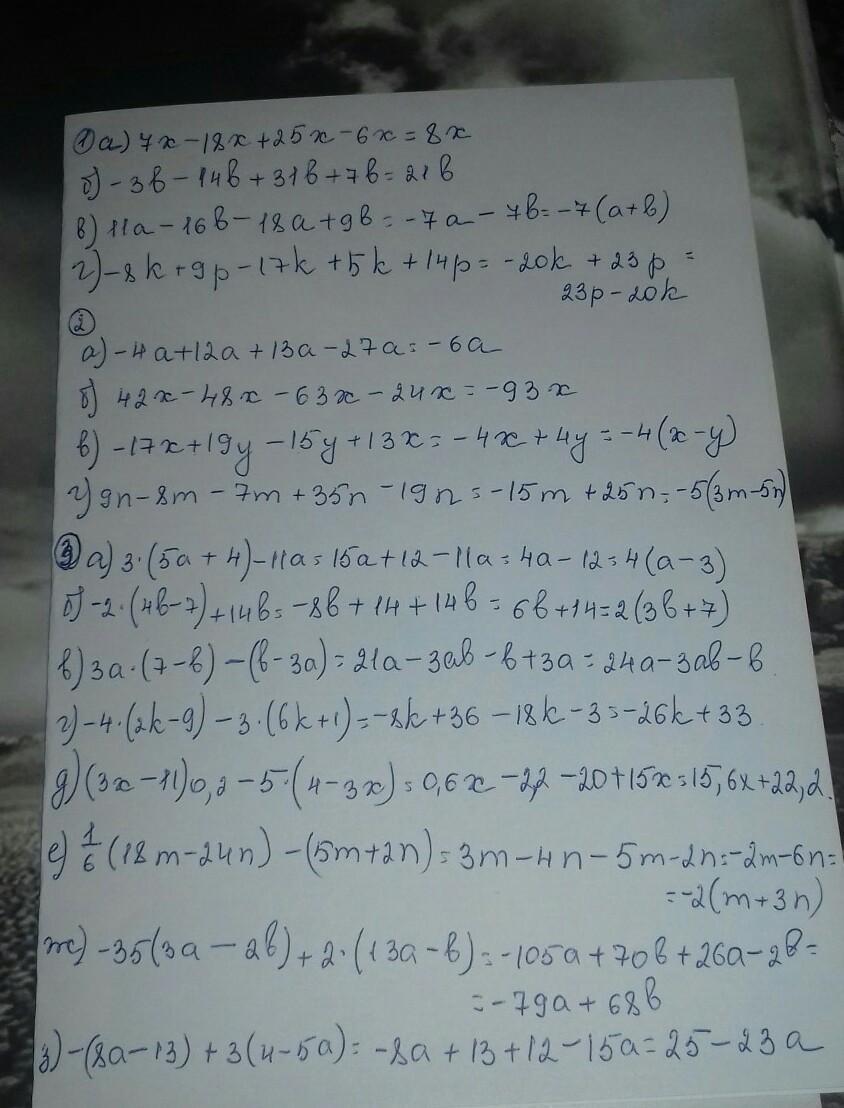 ① а) 7x-18x+25x-6x=8x
б) -3в-14в+31в+7в=21в
в) 11a-16в-18a+9в=-7a-7в=-7(a+в)
г) -8k+9p-17k+5k+14p=-20k+23p=
23p-20k
②
а) -4a+12a+13a-27a=-6a
б) 42x-48x-63x-24x=-93x
в) -17x+19y-15y+13x=-4x+4y=-4(x-y)
г) 9n-8m-7m+35n-19n=-15m+25n=-5(3m-5n)
③ а) 3·(5a+4)-11a=15a+12-11a=4a-12=4(a-3)
б) -2·(4в-7)+14в=-8в+14+14в=6в+14=2(3в+7)
в) 3a·(7-в)-(в-3a)=21a-3aв-в+3a=24a-3aв-в
г) -4·(2k-9)-3·(6k+1)=-8k+36-18k-3=-26k+33
д) (3x-11)0,2-5·(4-3x)=0,6x-2,2-20+15x=15,6x+22,2.
е) 1/6(18m-24n)-(5m+2n)=3m-4n-5m-2n=-2m-6n=
=-2(m+3n)
ж) -35(3a-2в)+2·(13a-в)=-105a+70в+26a-2в=
=-79a+68в
з) -(8a-13)+3(4-5a)=-8a+13+12-15a=25-23a